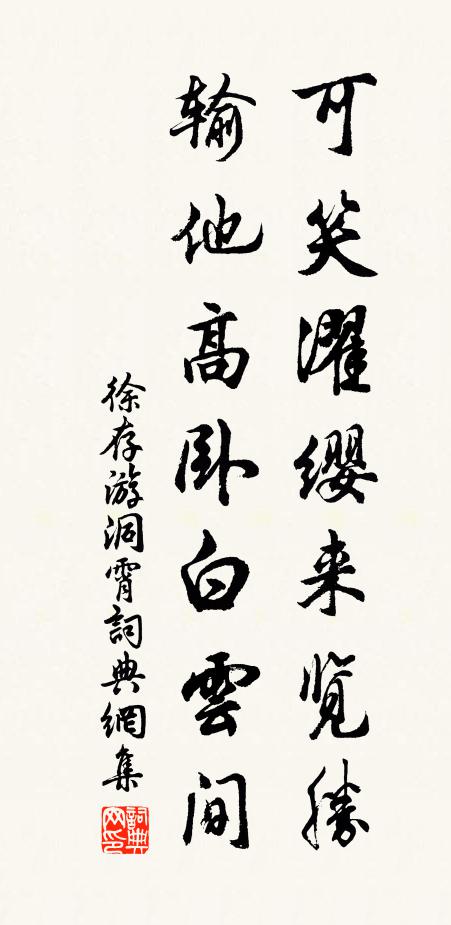 可笑濯缨来览胜
输他高卧白雲间
徐存游洞霄詞典網集
詞典网印